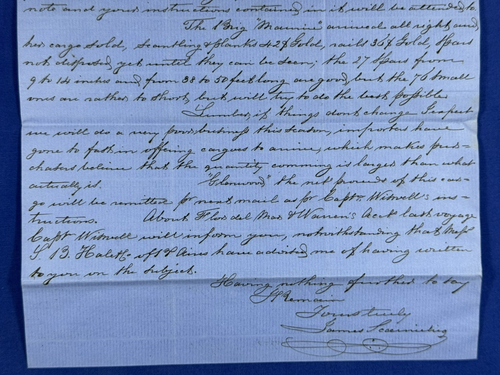 note and your instructions contained in it, will be attended to
The Brig "Mannie" arrived all right, and
her cargo sold, Scantling & planks 42$ Gold, rails 36$ Gold, Spars
not disposed, yet until they can be seen; the 27 Spars from
9 to 14 inches and from 38 to 50 feet long are good, but the 76 small
ones are rather to short, but will try to do the best possible
Lumber, if things dont change I expect
we will do a very poor business this season, importers have
gone to far in offering cargoes to arrive, which makes pur-
chasers believe that the quantity comming is larger than what
actually is. "Elenwood" the net proceeds of this car-
go will be remitted pr next mail as pr Capt. Wiswell's ins-
tructions. About Flor del Mar & Warren's Acct last voyage
Capt Wiswell will inform you, notwithstanding that Messrs
have advised me of having written
to you on the subject.
Having nothing further to say
I Remain
Yours truly
James